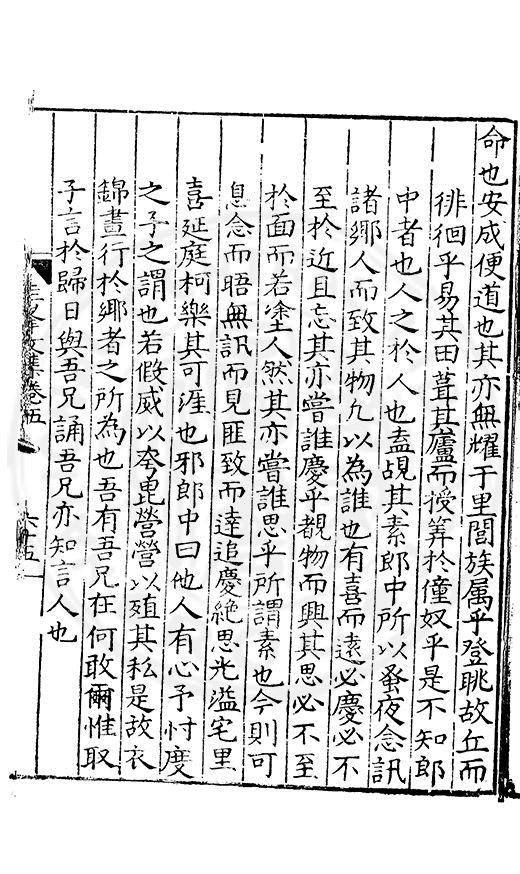 命也安成便道也其亦無耀于里閭族属乎登眺故丘而
徘徊乎易其田葺其廬而授筭於僮奴乎是不知郎
中者也人之於人也盍覘其素郎中所以蚤夜念訊
諸鄉人而致其物凡以為誰也有喜而遠必慶必不
至於近且忘其亦嘗誰慶乎覩物而興其思必不至
於面而若塗人然其亦嘗誰思乎所謂素也今則可
息念而晤無訊而見匪致而達追慶絶思光溢宅里
喜延庭柯樂其可涯也邪郎中曰他人有心予忖度
之予之謂也若假威以夸毘營營以殖其私是故衣
錦晝行於鄉者之所為也吾有吾兄在何敢爾惟取
子言於歸日與吾兄誦吾兄亦知言人也
文集卷五
六十五